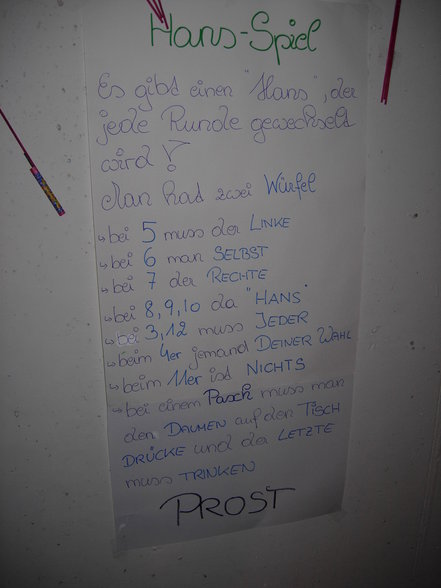 Hans-Spiel
Es gibt einen "Hans", der
jede Runde gewechselt
wird!
Man hat zwei Würfel
↳ bei 5 muss der LINKE
↳ bei 6 man SELBST
↳ bei 7 der RECHTE
↳ bei 8, 9, 10 da "HANS"
↳ bei 3, 12 muss JEDER
↳ beim 4er jemand DEINER WAHL
↳ beim 11er ist NICHTS
↳ bei einem Pasch muss man
den DAUMEN auf den TISCH
DRÜCKE und da LETZTE
muss TRINKEN
PROST